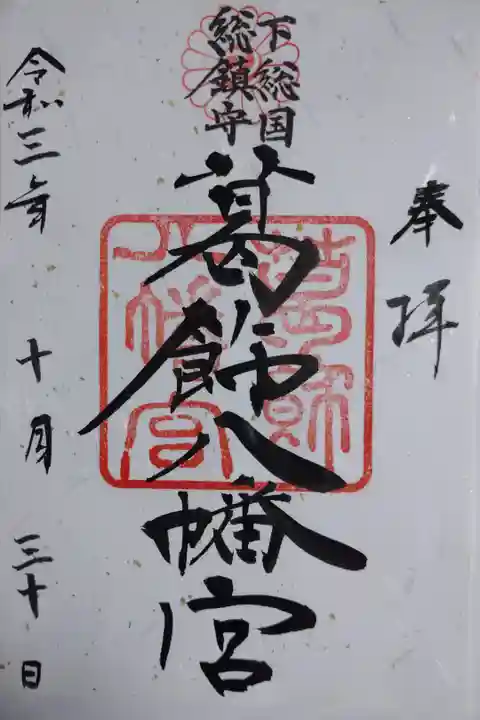 奉拝
下総国
総鎮守
葛飾八幡宮
葛飾
八幡宮
令和三年 十月 三十日